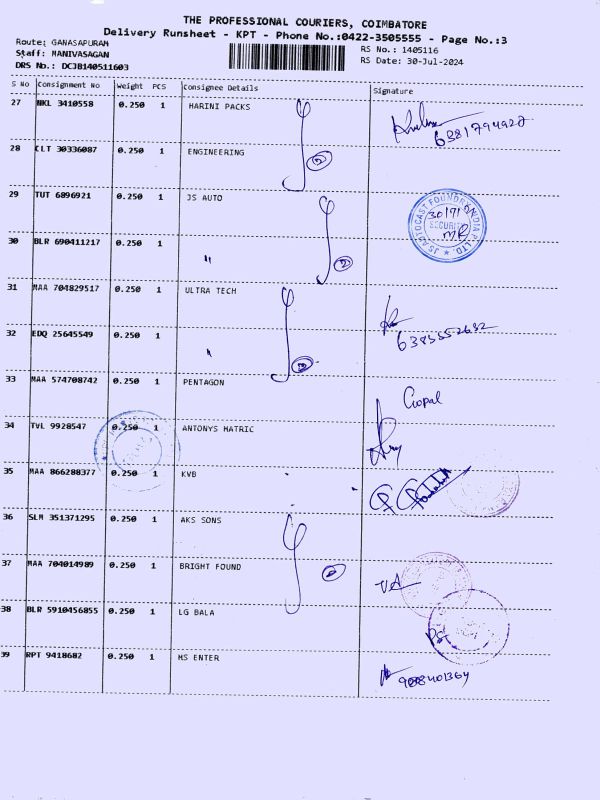 THE PROFESSIONAL COURIERS, COIMBATORE
Delivery Runsheet - KPT - Phone No.:0422-3505555 - Page No.:3
Route: GANASAPURAM
Staff: MANIVASAGAN
DRS No.: DCJB140511603
RS No.: 1405116
RS Date: 30-Jul-2024
S No Consignment No Weight PCS Consignee Details Signature
27 NKL 3410558 0.250 1 HARINI PACKS
6381794928
28 CLT 30336087 0.250 1 ENGINEERING
29 TUT 6896921 0.250 1 JS AUTO
JS AUTOCAST FOUNDRY INDIA P. LTD.
SECURITY
30 BLR 690411217 0.250 1 "
31 MAA 704829517 0.250 1 ULTRA TECH
32 EDQ 25645549 0.250 1 "
6385552632
33 MAA 574708742 0.250 1 PENTAGON
Gopal
34 TVL 9928547 0.250 1 ANTONYS MATRIC
35 MAA 866288377 0.250 1 KVB
36 SLM 351371295 0.250 1 AKS SONS
37 MAA 704014989 0.250 1 BRIGHT FOUND
38 BLR 5910456855 0.250 1 LG BALA
39 RPT 9418682 0.250 1 HS ENTER